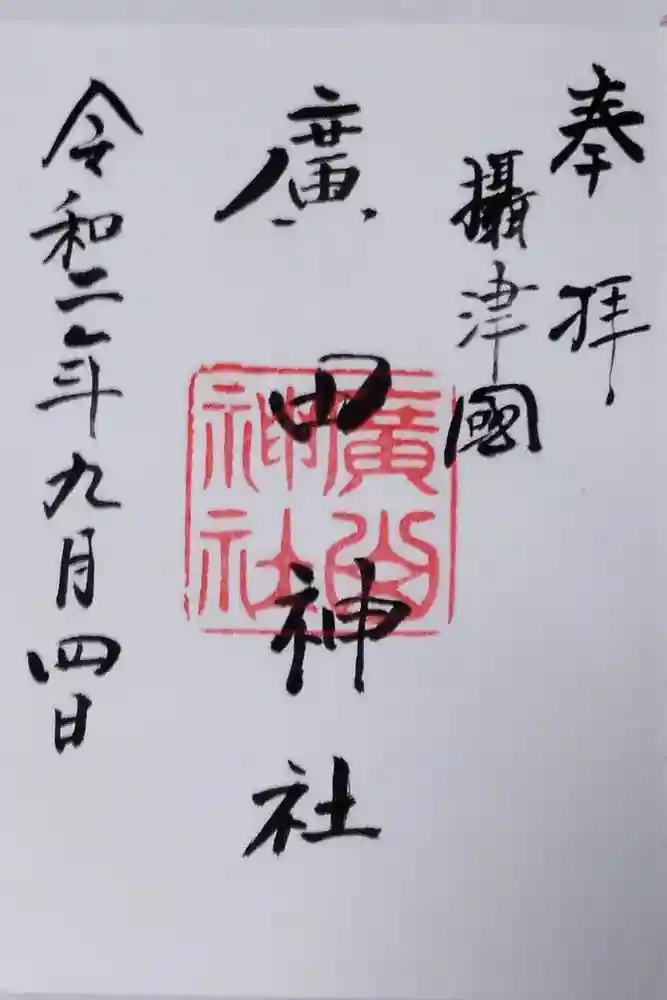 奉拝
攝津國
廣田神社
令和二年九月四日
廣田
神社